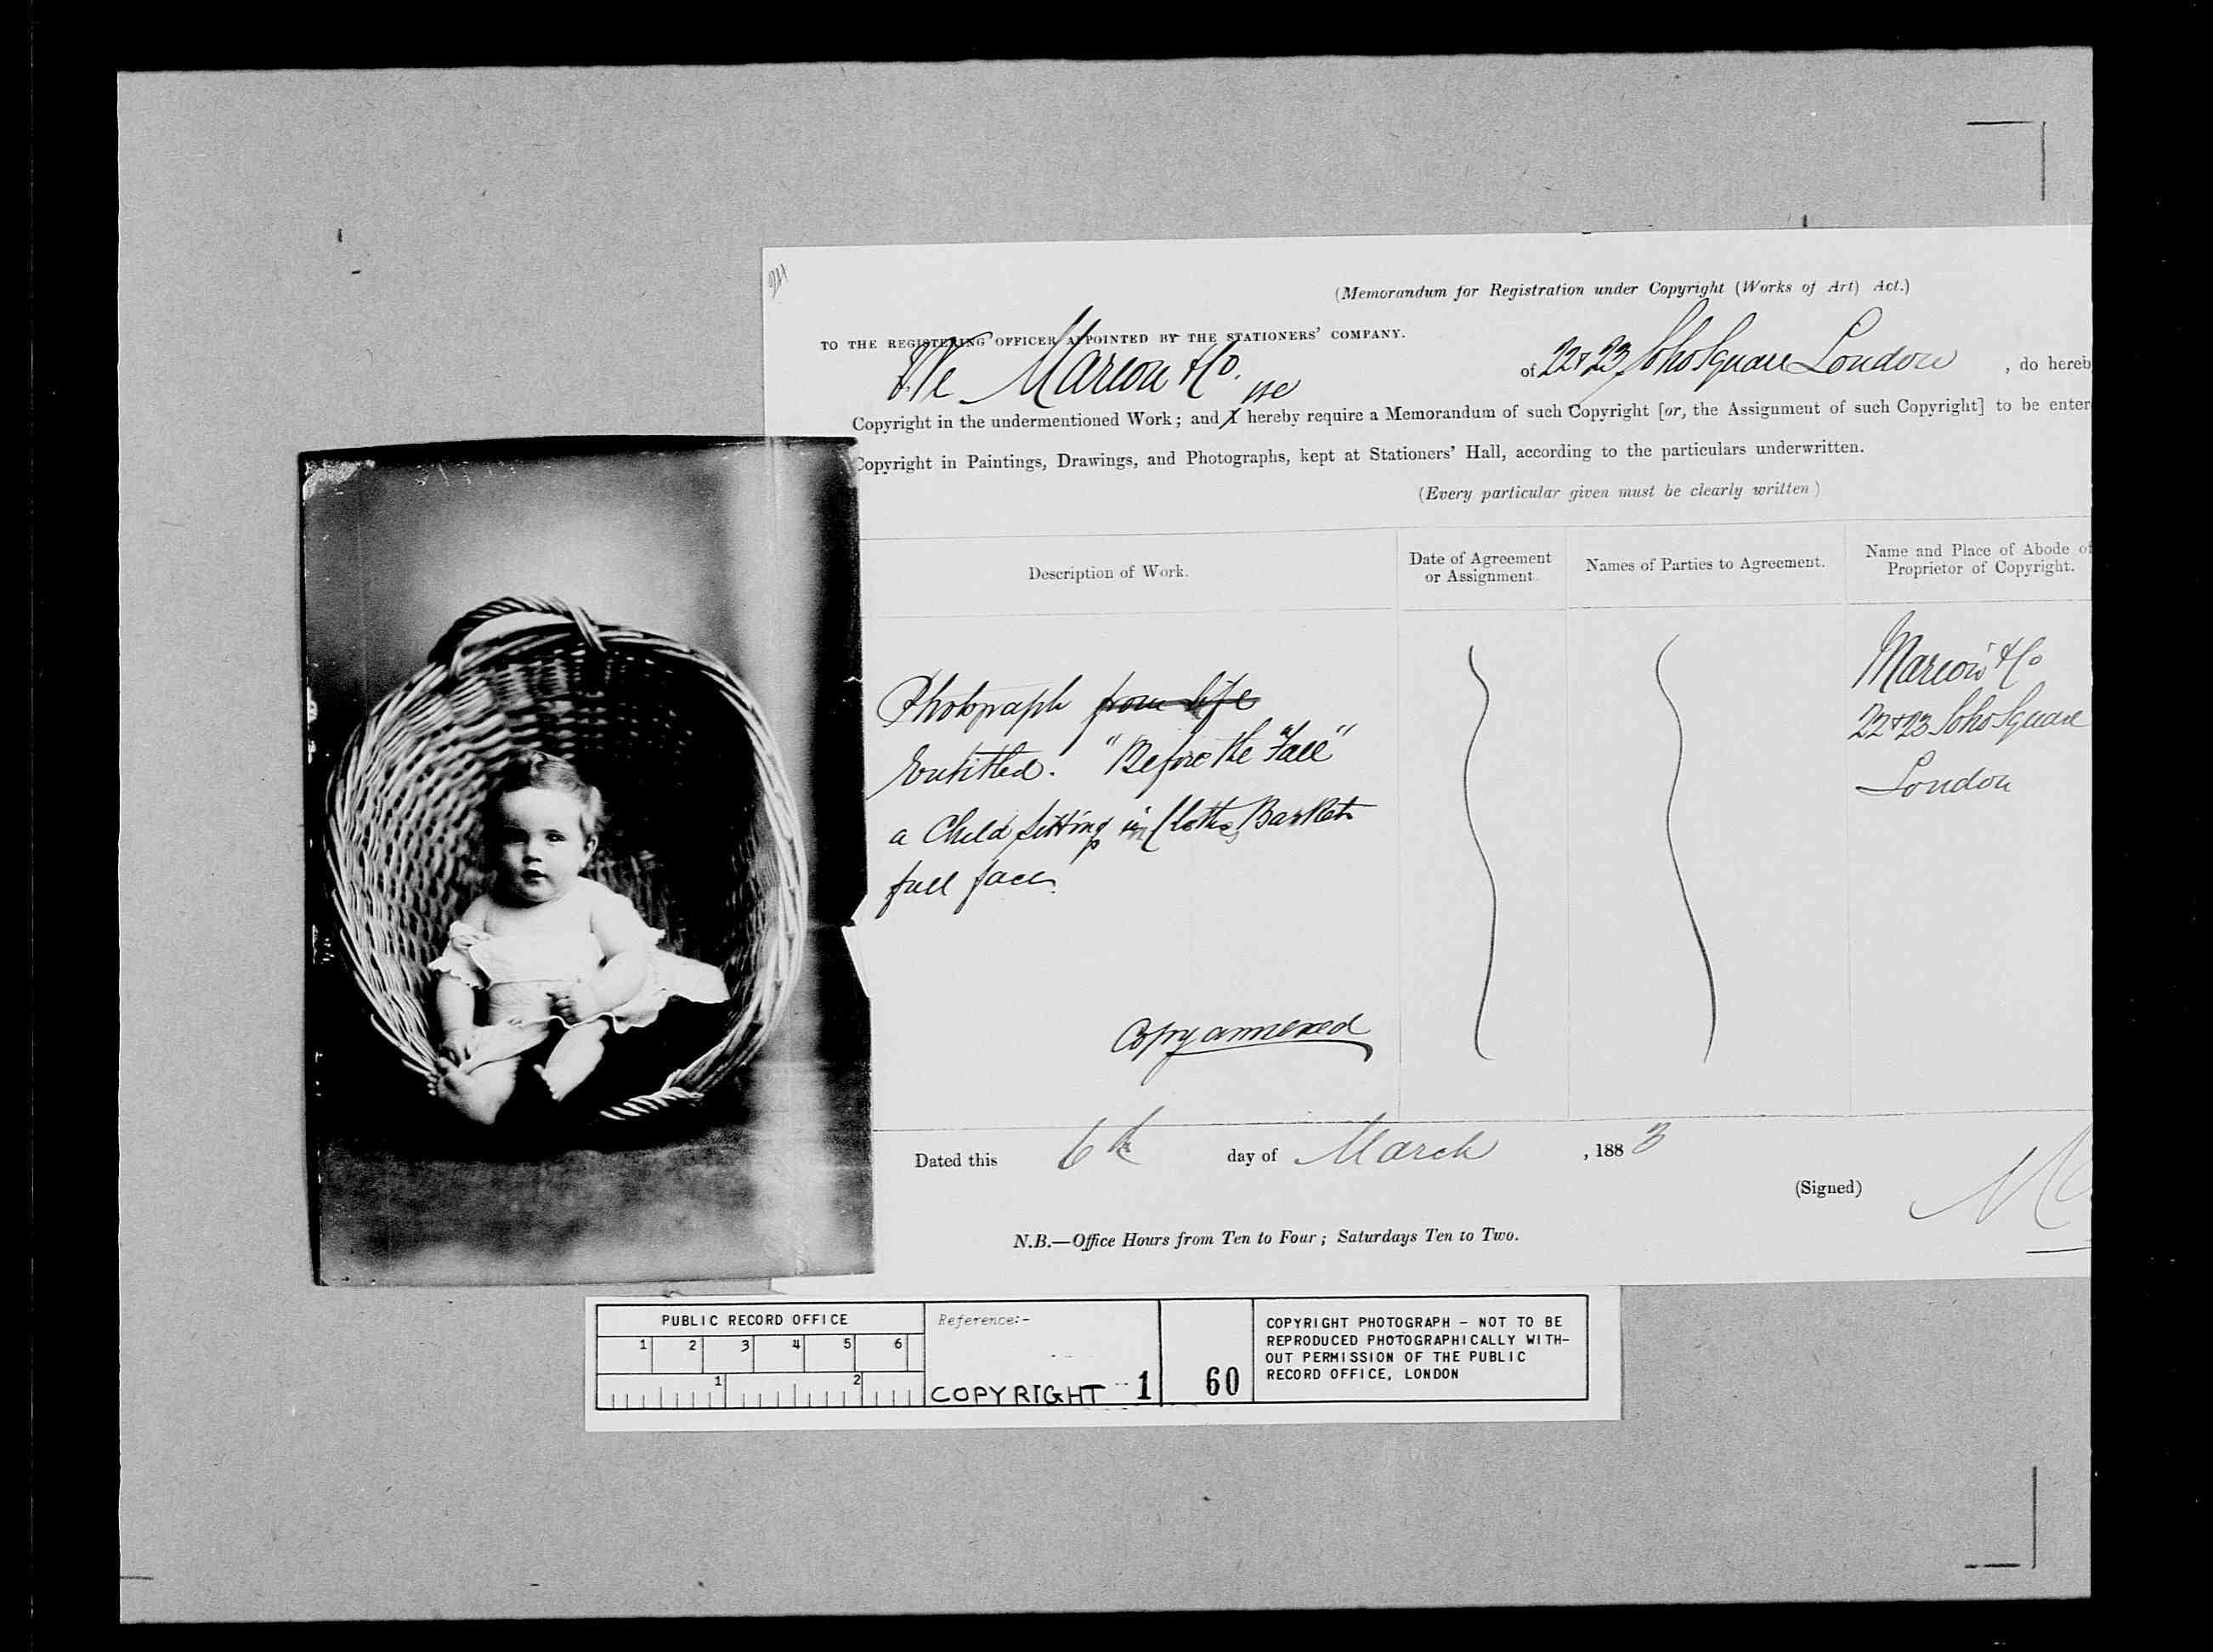 (Memorandum for Registration under Copyright (Works of Art) Act.)
TO THE REGISTERING OFFICER APPOINTED BY THE STATIONERS' COMPANY.
We Marion & Co. of 22 & 23 Soho Square London, do hereb
we
Copyright in the undermentioned Work; and I hereby require a Memorandum of such Copyright [or, the Assignment of such Copyright] to be enter
Copyright in Paintings, Drawings, and Photographs, kept at Stationers' Hall, according to the particulars underwritten.
(Every particular given must be clearly written)
Description of Work.
Date of Agreement
or Assignment.
Names of Parties to Agreement.
Name and Place of Abode of
Proprietor of Copyright.
Photograph from life
Entitled. "Before the Fall"
a Child sitting in Cloths Basket
full face.
Copy annexed
Marion & Co
22 & 23 Soho Square
London
Dated this 6th day of March, 1883
(Signed)
N.B.—Office Hours from Ten to Four; Saturdays Ten to Two.
PUBLIC RECORD OFFICE
1 2 3 4 5 6
1 2
Reference:-
COPYRIGHT 1
60
COPYRIGHT PHOTOGRAPH - NOT TO BE
REPRODUCED PHOTOGRAPHICALLY WITH-
OUT PERMISSION OF THE PUBLIC
RECORD OFFICE, LONDON